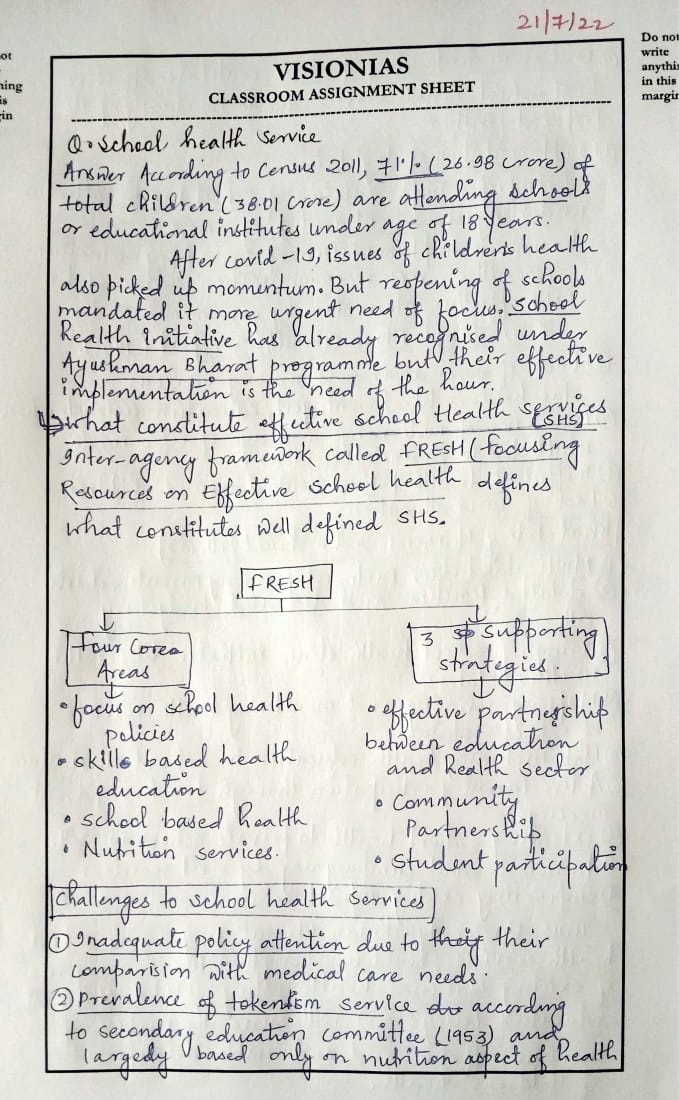 21/7/22
ot
ning
is
in
Do not
write
anythi
in this
margin
VISIONIAS
CLASSROOM ASSIGNMENT SHEET
Q. School health service
Answer According to Census 2011, 71% (26.98 crore) of
total children (38.01 crore) are attending schools
or educational institutes under age of 18 years.
After covid-19, issues of children's health
also picked up momentum. But reopening of schools
mandated it more urgent need of focus. School
Health initiative has already recognised under
Ayushman Bharat programme but their effective
implementation is the need of the hour.
what constitute effective school Health services
(SHS)
Inter-agency framework called FRESH (focusing
Resources on Effective School health defines
what constitutes well defined SHS.
FRESH
four Cores
Areas
3 sp supporting
strategies.
• focus on school health
policies
• skills based health
education
• school based health
• Nutrition services.
• effective partnership
between education
and Health sector
• Community
Partnership
• Student participation
Challenges to school health services
① Inadequate policy attention due to their their
comparision with medical care needs.
② prevalence of tokenism service du according
to secondary education committee (1953) and
largedy based only on nutrition aspect of health